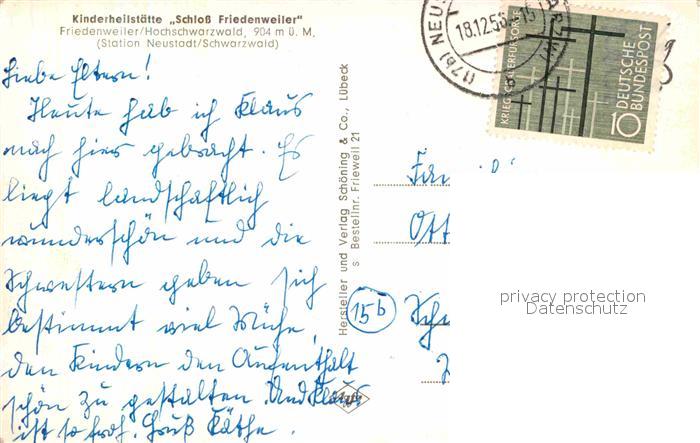 Kinderheilstätte „Schloß Friedenweiler"
Friedenweiler/Hochschwarzwald, 904 m ü. M.
(Station Neustadt/Schwarzwald)
Liebe Eltern!
Heute hab ich Klaus
nach hier gebracht. Es
liegt landschaftlich
wunderschön und die
Schwestern geben sich
bestimmt viel Mühe,
den Kindern den Aufenthalt
schön zu gestalten. Und Klaus
ist so froh. Gruß Käthe.
Hersteller und Verlag Schöning & Co., Lübeck
s Bestellnr. Frieweil 21
(17b) NEUS
18.12.56
KRIEGSGRÄBERFÜRSORGE
DEUTSCHE
BUNDESPOST
10
Fa
Ott
15b
Sch
privacy protection
Datenschutz